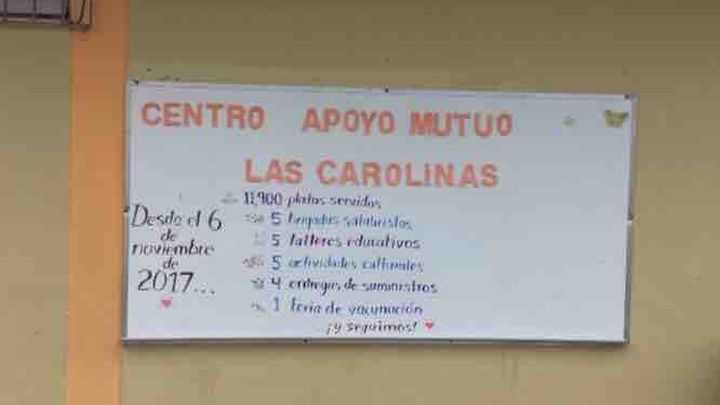 CENTRO APOYO MUTUO
LAS CAROLINAS
Desde el 6
de
noviembre
de
2017...
11,900 platos servidos
5 brigadas salubristas
5 talleres educativos
5 actividades culturales
4 entregas de suministros
1 feria de vacunación
¡y seguimos!